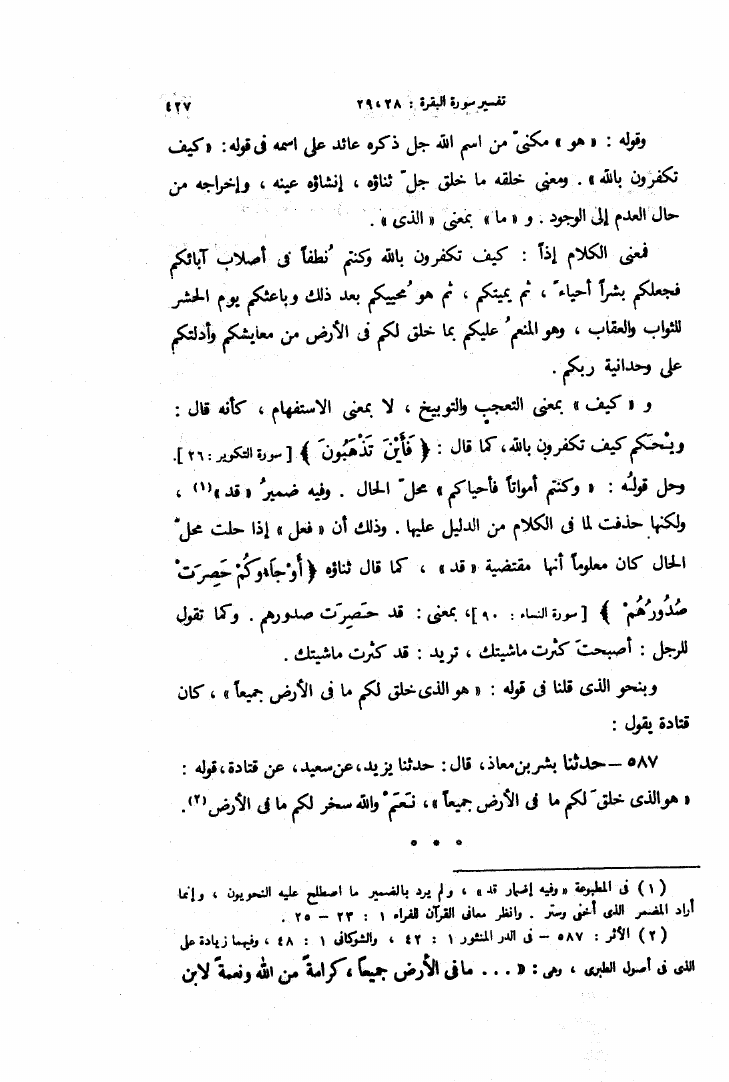 تفسير سورة البقرة : ٢٨ ، ٢٩ ٤٢٧
وقوله : « هو » مكنىّ من اسم الله جل ذكره عائد على اسمه فى قوله : « كيف
تكفرون بالله » . ومعنى خلقه ما خلق جلّ ثناؤه ، إنشاؤه عينه ، وإخراجه من
حال العدم إلى الوجود . و « ما » بمعنى « الذى » .
فمعنى الكلام إذاً : كيف تكفرون بالله وكنتم نُطفاً فى أصلاب آبائكم
فجعلكم بشراً أحياءً ، ثم يميتكم ، ثم هو مُحييكم بعد ذلك وباعثكم يوم الحشر
للثواب والعقاب ، وهو المنعمُ عليكم بما خلق لكم فى الأرض من معايشكم وأدلتكم
على وحدانية ربكم .
و « كيف » بمعنى التعجب والتوبيخ ، لا بمعنى الاستفهام ، كأنه قال :
ويْحَكم كيف تكفرون بالله ، كما قال : ﴿ فَأَيْنَ تَذْهَبُونَ ﴾ [ سورة التكوير : ٢٦ ] .
وحل قولُه : « وكنتم أمواتاً فأحياكم » محلّ الحال . وفيه ضميرُ « قد » (١) ،
ولكنها حذفت لما فى الكلام من الدليل عليها . وذلك أن « فعل » إذا حلت محلّ
الحال كان معلوماً أنها مقتضية « قد » ، كما قال ثناؤه ﴿ أَوْ جَاءُوكُمْ حَصِرَتْ
صُدُورُهُمْ ﴾ [ سورة النساء : ٩٠ ] ، بمعنى : قد حَصِرَت صدورهم . وكما تقول
للرجل : أصبحتَ كثرت ماشيتك ، تريد : قد كثرت ماشيتك .
وبنحو الذى قلنا فى قوله : « هو الذى خلق لكم ما فى الأرض جميعاً » ، كان
قتادة يقول :
٥٨٧ – حدثنا بشر بن معاذ ، قال : حدثنا يزيد ، عن سعيد ، عن قتادة ، قوله :
« هو الذى خلقَ لكم ما فى الأرض جميعاً » ، نَعَمْ والله سخر لكم ما فى الأرض (٢) .
• • •
( ١ ) فى المطبوعة « وفيه إضمار قد » ، ولم يرد بالضمير ما اصطلح عليه النحويون ، وإنما
أراد المضمر الذى أخفى وستر . وانظر معانى القرآن للفراء ١ : ٢٣ – ٢٥ .
( ٢ ) الأثر : ٥٨٧ – فى الدر المنثور ١ : ٤٢ ، والشوكانى ١ : ٤٨ ، وفيهما زيادة على
الذى فى أصول الطبرى ، وهى : « ... ما فى الأرض جميعاً ، كرامةً من الله ونعمةً لابن